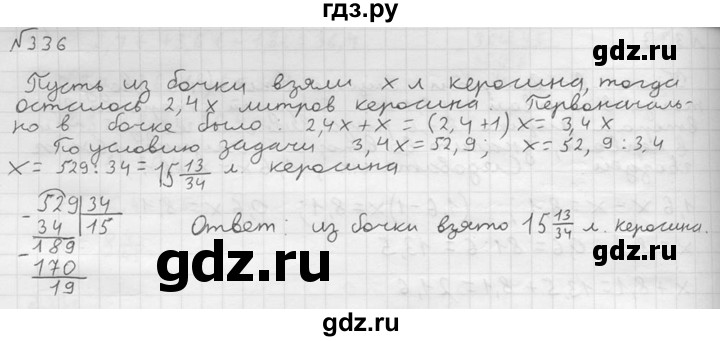 гдз.ру
№336
Пусть из бочки взяли x л керосина, тогда
осталось 2,4x литров керосина. Первоначаль-
но в бочке было: 2,4x+x = (2,4+1)x = 3,4x
По условию задачи 3,4x=52,9; x=52,9:3,4
x= 529:34= 15 13/34 л керосина
529|34
34 |15
189
170
19
Ответ: из бочки взято 15 13/34 л. керосина.
gdz.ru
gdz.ru
gdz.ru
gdz.ru
gdz.ru